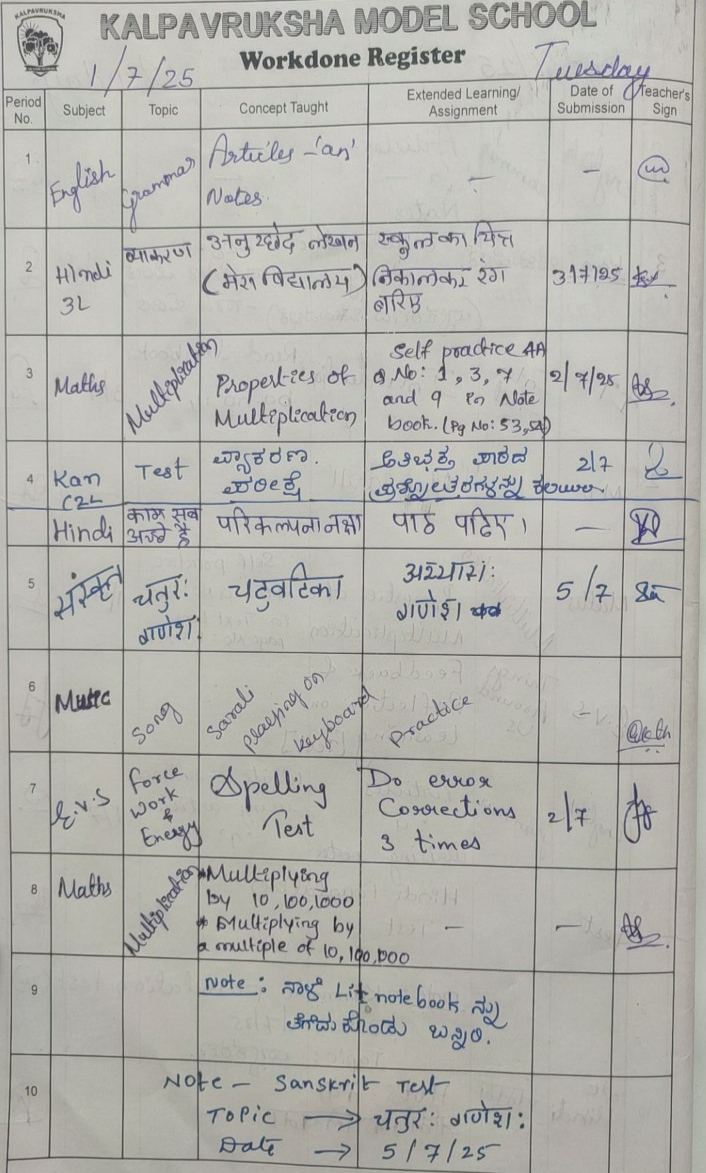 KALPAVRUKSHA
KALPAVRUKSHA MODEL SCHOOL
Workdone Register
1/7/25 Tuesday
Period No. Subject Topic Concept Taught Extended Learning/ Assignment Date of Submission Teacher's Sign
1 English Grammar Articles - 'an' – –
Notes.
2 Hindi 3L व्याकरण अनुच्छेद लेखन स्कूल का चित्र
(मेरा विद्यालय) निकालकर रंग 3/7/25
भरिए
3 Maths Multiplication Properties of Multiplication Self practice 4A
Q.No: 1, 3, 7 2/7/25
and 9 in Note
book. (Pg No: 53,54)
4 Kan Test ವ್ಯಾಕರಣ. ಪಾಠದ 2/7
C2L ಪರೀಕ್ಷೆ ಪ್ರಶ್ನೋತ್ತರಗಳನ್ನು
Hindi काम सब परिकल्पना नक्षा पाठ पढिए। –
अच्छे है
5 संस्कृत चतुरः चटुवटिका अभ्यासः 5/7
गणेशः गणेश
6 Music Song Sarali Practice
playing on
keyboard
7 E.V.S Force Spelling Do error
Work Test Corrections 2/7
& 3 times
Energy
8 Maths Multiplication * Multiplying
by 10,100,1000
* Multiplying by – –
a multiple of 10,100,000
9 Note: ನಾಳೆ Lit notebook ನ್ನು
ತೆಗೆದುಕೊಂಡು ಬನ್ನಿರಿ.
10 Note - Sanskrit Test
Topic → चतुरः गणेशः
Date → 5/7/25